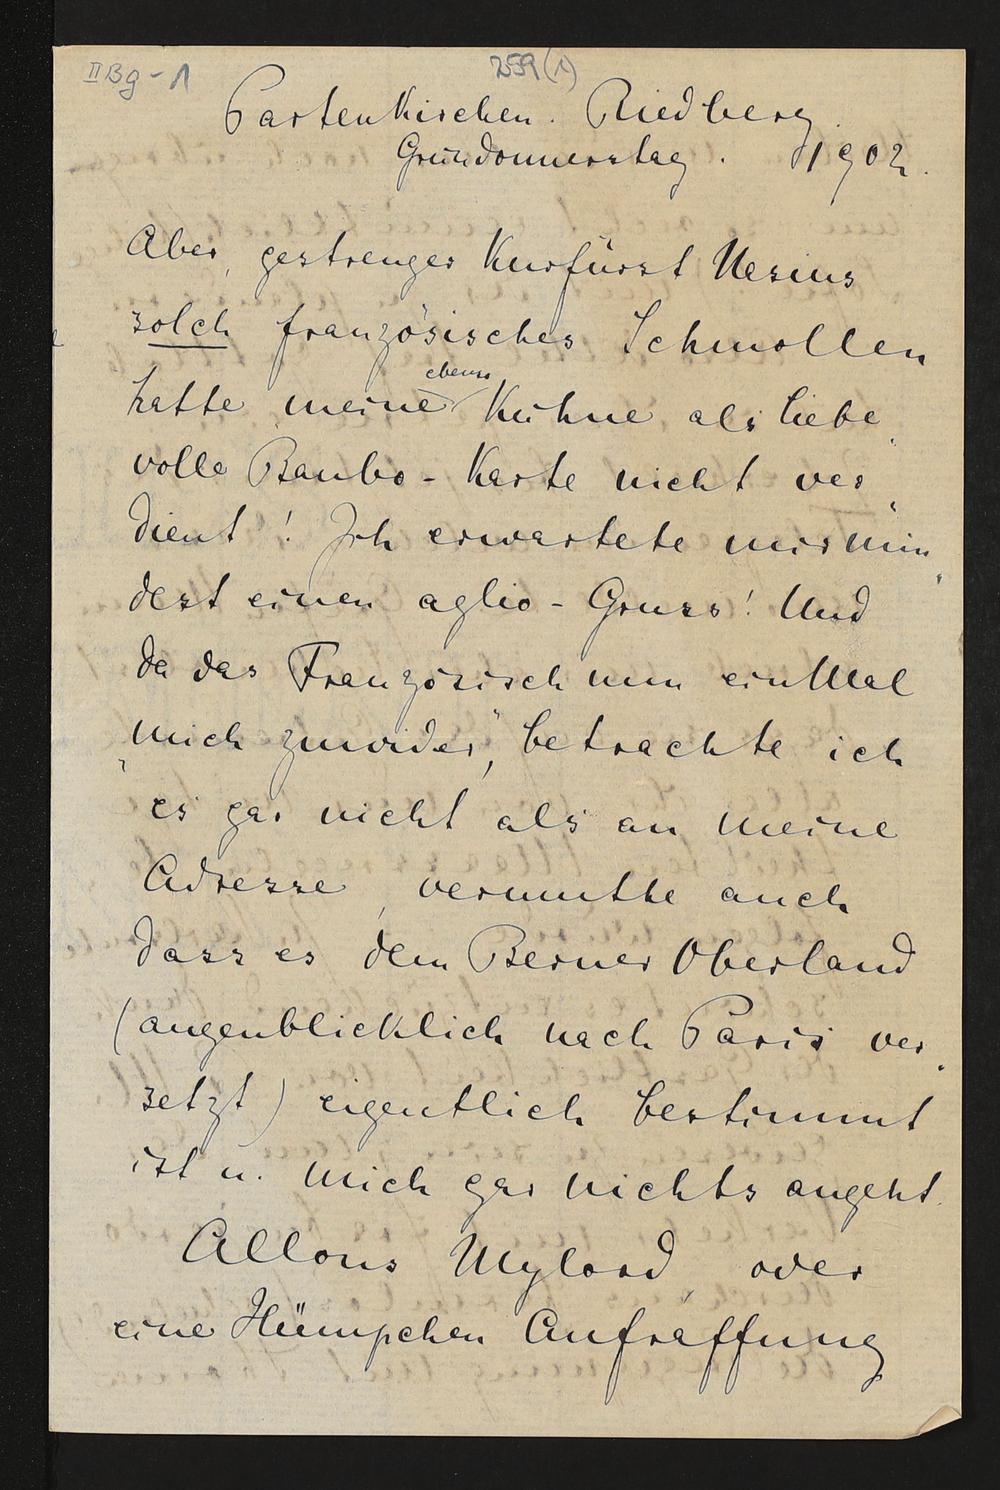 II Bg - 1
259 (1)
Partenkirchen. Riedberg.
Gründonnerstag. 1902.
Aber, gestrenger Kurfürst Nesius
solch französisches Schmollen
hatte meine ebenso kühne als liebe„
volle Baubo - Karte nicht ver„
dient! Ich erwartete mir min„
dest einen aglio - Gruss! Und
da das Französisch nun einMal
„mich zuwider“, betrachte ich
es gar nicht als an meine
Adresse, vermuthe auch
dass es dem Berner Oberland
(augenblicklich nach Paris ver„
setzt) eigentlich bestimmt
ist u. mich gar nichts angeht.
Allons Mylord, oder
eine Hümpchen Aufraffung